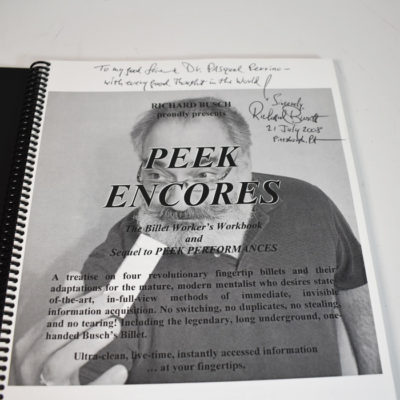 To my good friend Dr. Pasqual Perrino —
with every good Thought in the World!
Sincerely,
Richard Busch
21 July 2008
Pittsburgh, PA
RICHARD BUSCH
proudly presents
PEEK
ENCORES
The Billet Worker's Workbook
and
Sequel to PEEK PERFORMANCES
A treatise on four revolutionary fingertip billets and their
adaptations for the mature, modern mentalist who desires state-
of-the-art, in-full-view methods of immediate, invisible
information acquisition. No switching, no duplicates, no stealing,
and no tearing! Including the legendary, long underground, one-
handed Busch's Billet.
Ultra-clean, live-time, instantly accessed information
... at your fingertips.